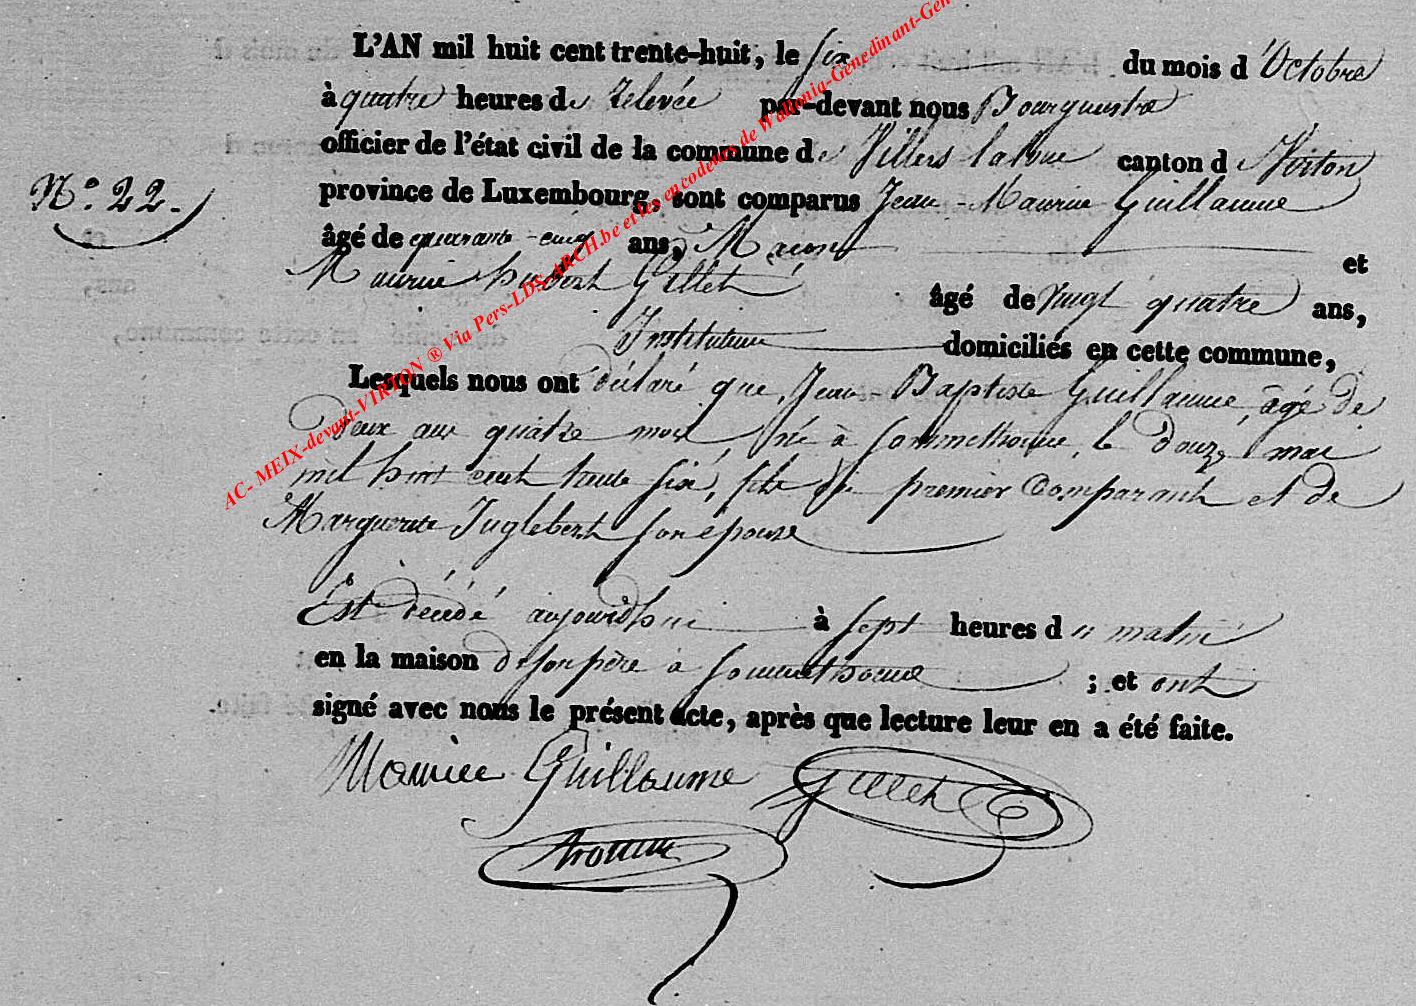 L'AN mil huit cent trente-huit, le six du mois d'Octobre
à quatre heures de relevée par-devant nous Bourguestre
officier de l'état civil de la commune de Villers la loue canton de Virton
N.° 22.
province de Luxembourg, sont comparus Jean-Maurice Guillaume
âgé de quarante-cinq ans, Macon et
Maurice hubert Gillet âgé de Vingt quatre ans,
Instituteur domiciliés en cette commune,
Lesquels nous ont déclaré que Jean-Baptiste Guillaume âgé de
Deux ans quatre mois né à Sommethonne, le douze mai
mil huit cent trente six, fils du premier Comparant et de
Marguerite Inglebert son épouse
Est décédé aujourdhui à sept heures du matin
en la maison de son père à Sommethonne ; et ont
signé avec nous le présent acte, après que lecture leur en a été faite.
Maurice Guillaume Gillet
AC- MEIX-devant-VIRTON ® Via Pers-LDS-ARCH.be et les encodeurs de Wallonia-Genedinant-Gen